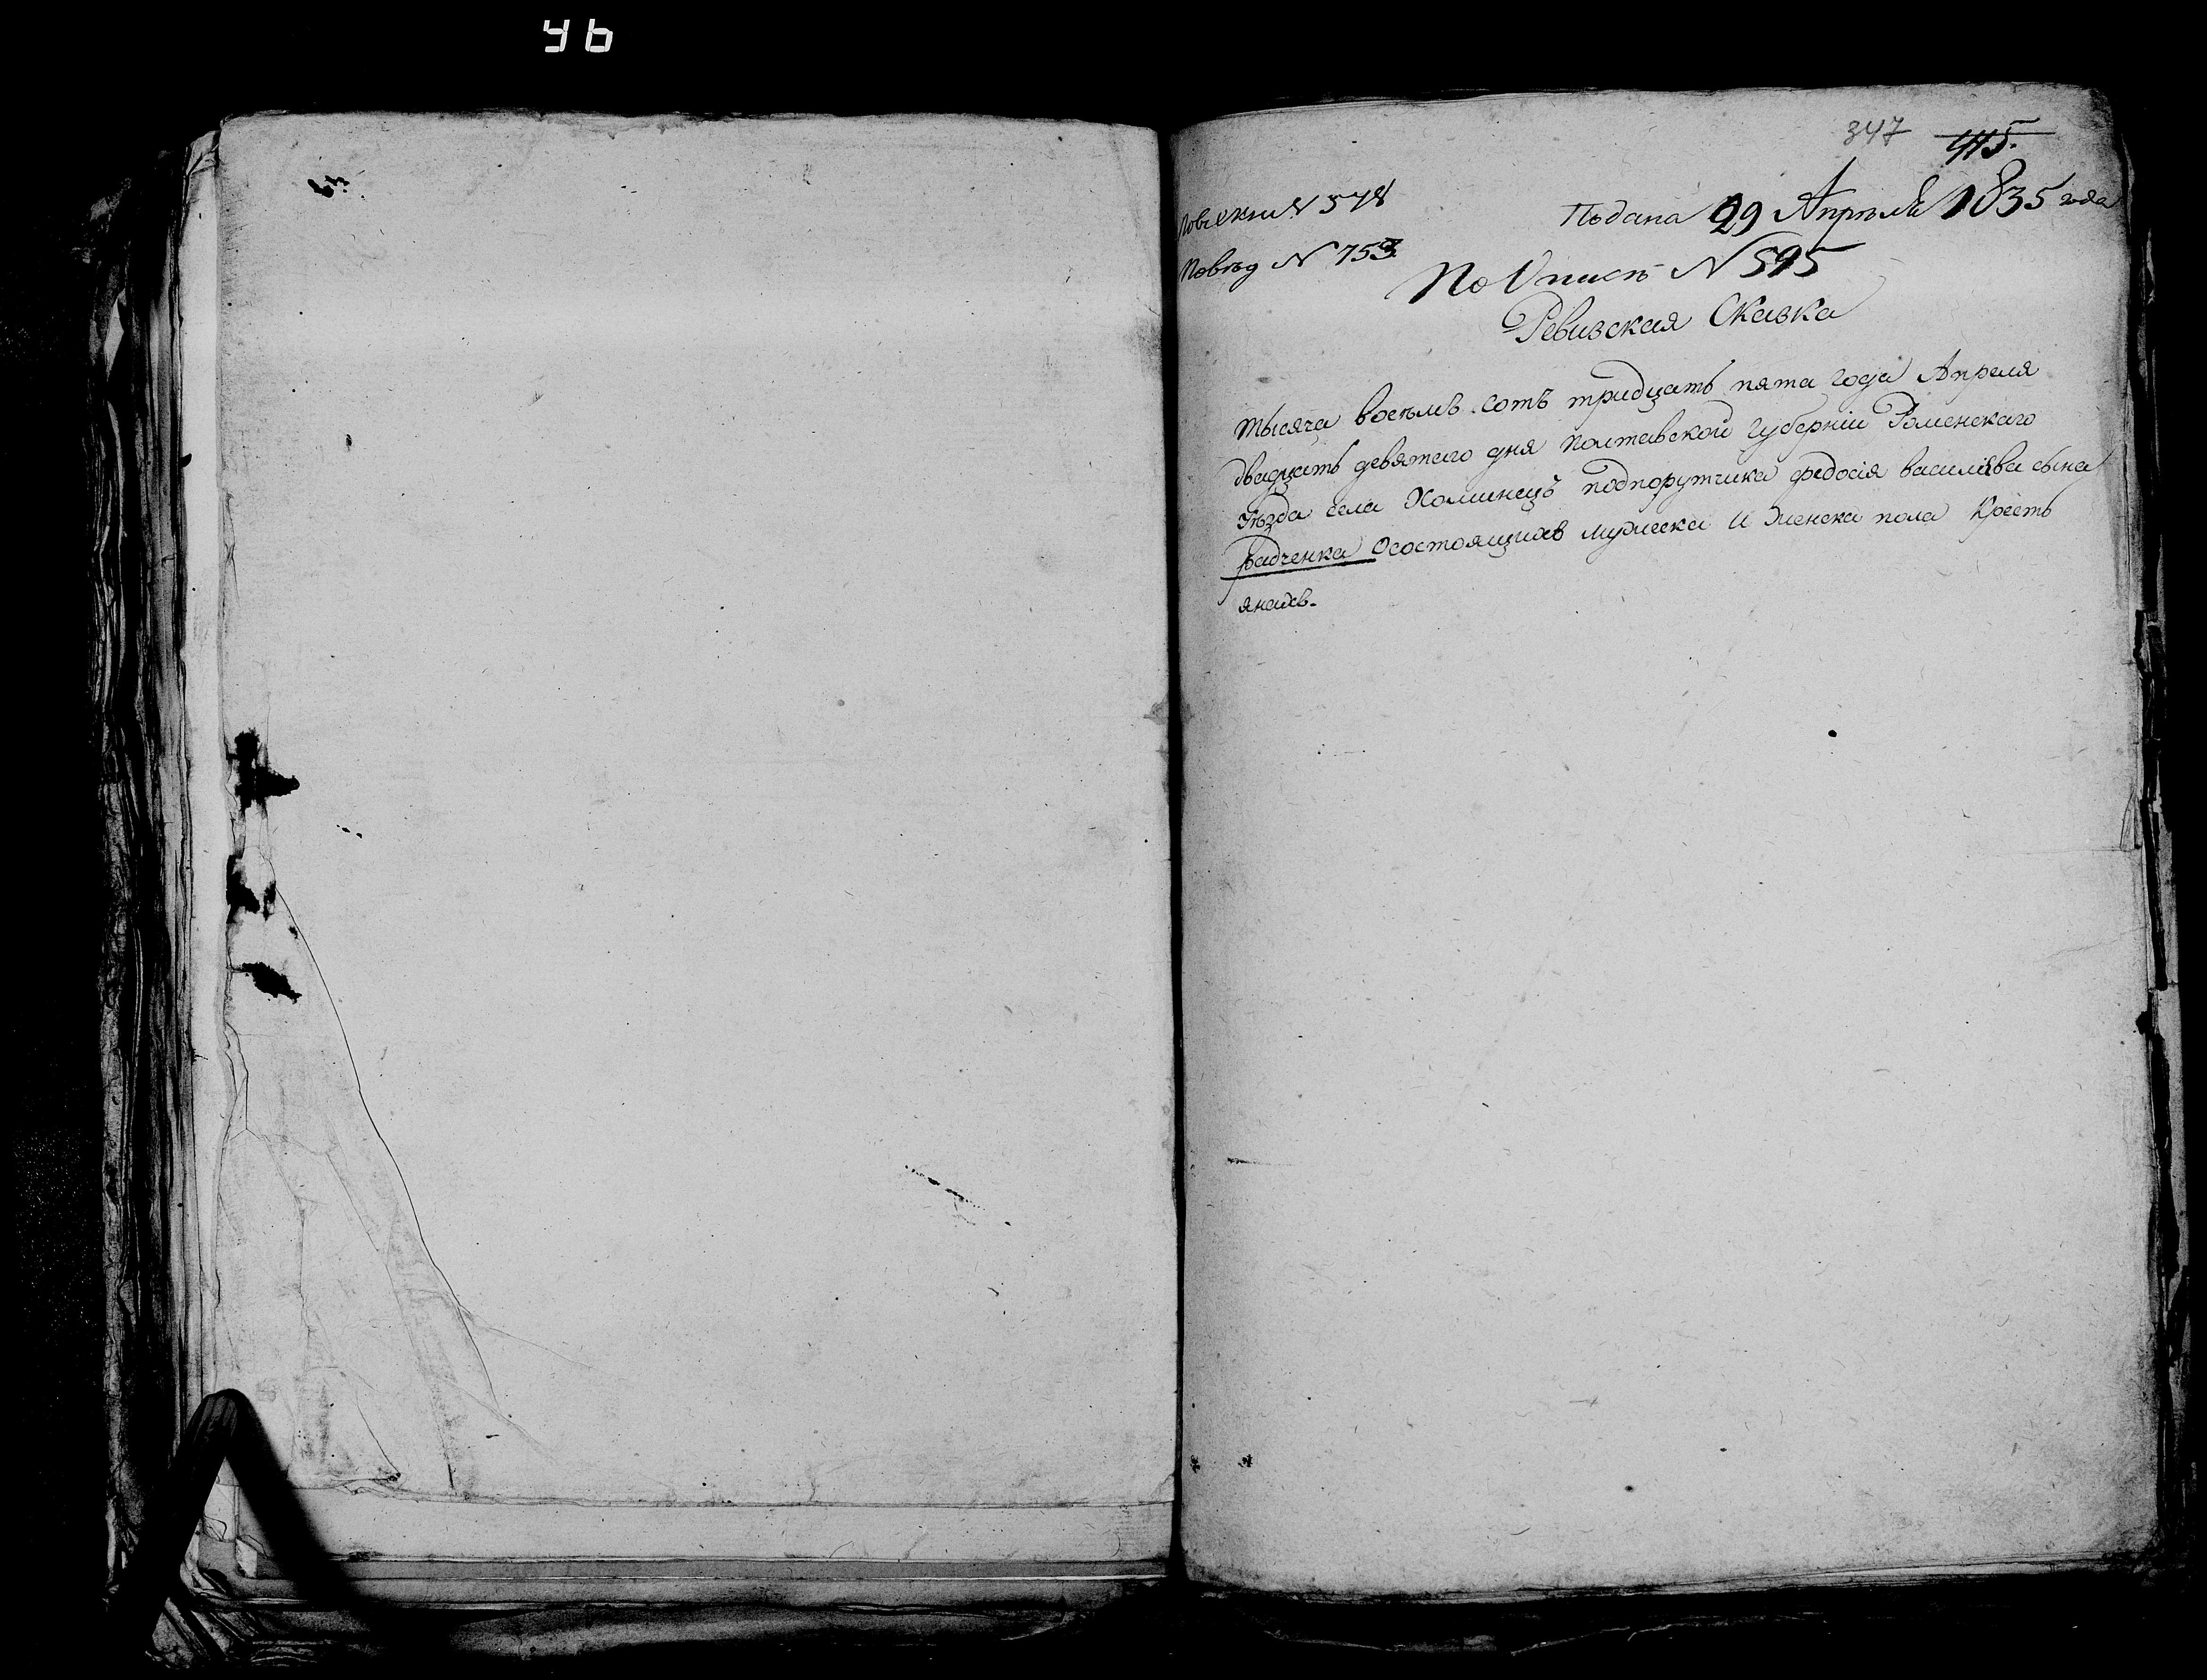 46
347 415.
N 578 Подана 29 Апреля 1835 года
N 753
По Описи N 595
Ревизская Сказка
Тысяча восемъ сотъ тридцать пята года Апреля
двадцать девятаго дня Полтавской Губерніи Роменскаго
уѣзда села Хоминецъ подпорутчика федосія василіева сына
Радченка Осостоящихъ мужеска И женска пола Кресть
янахъ.